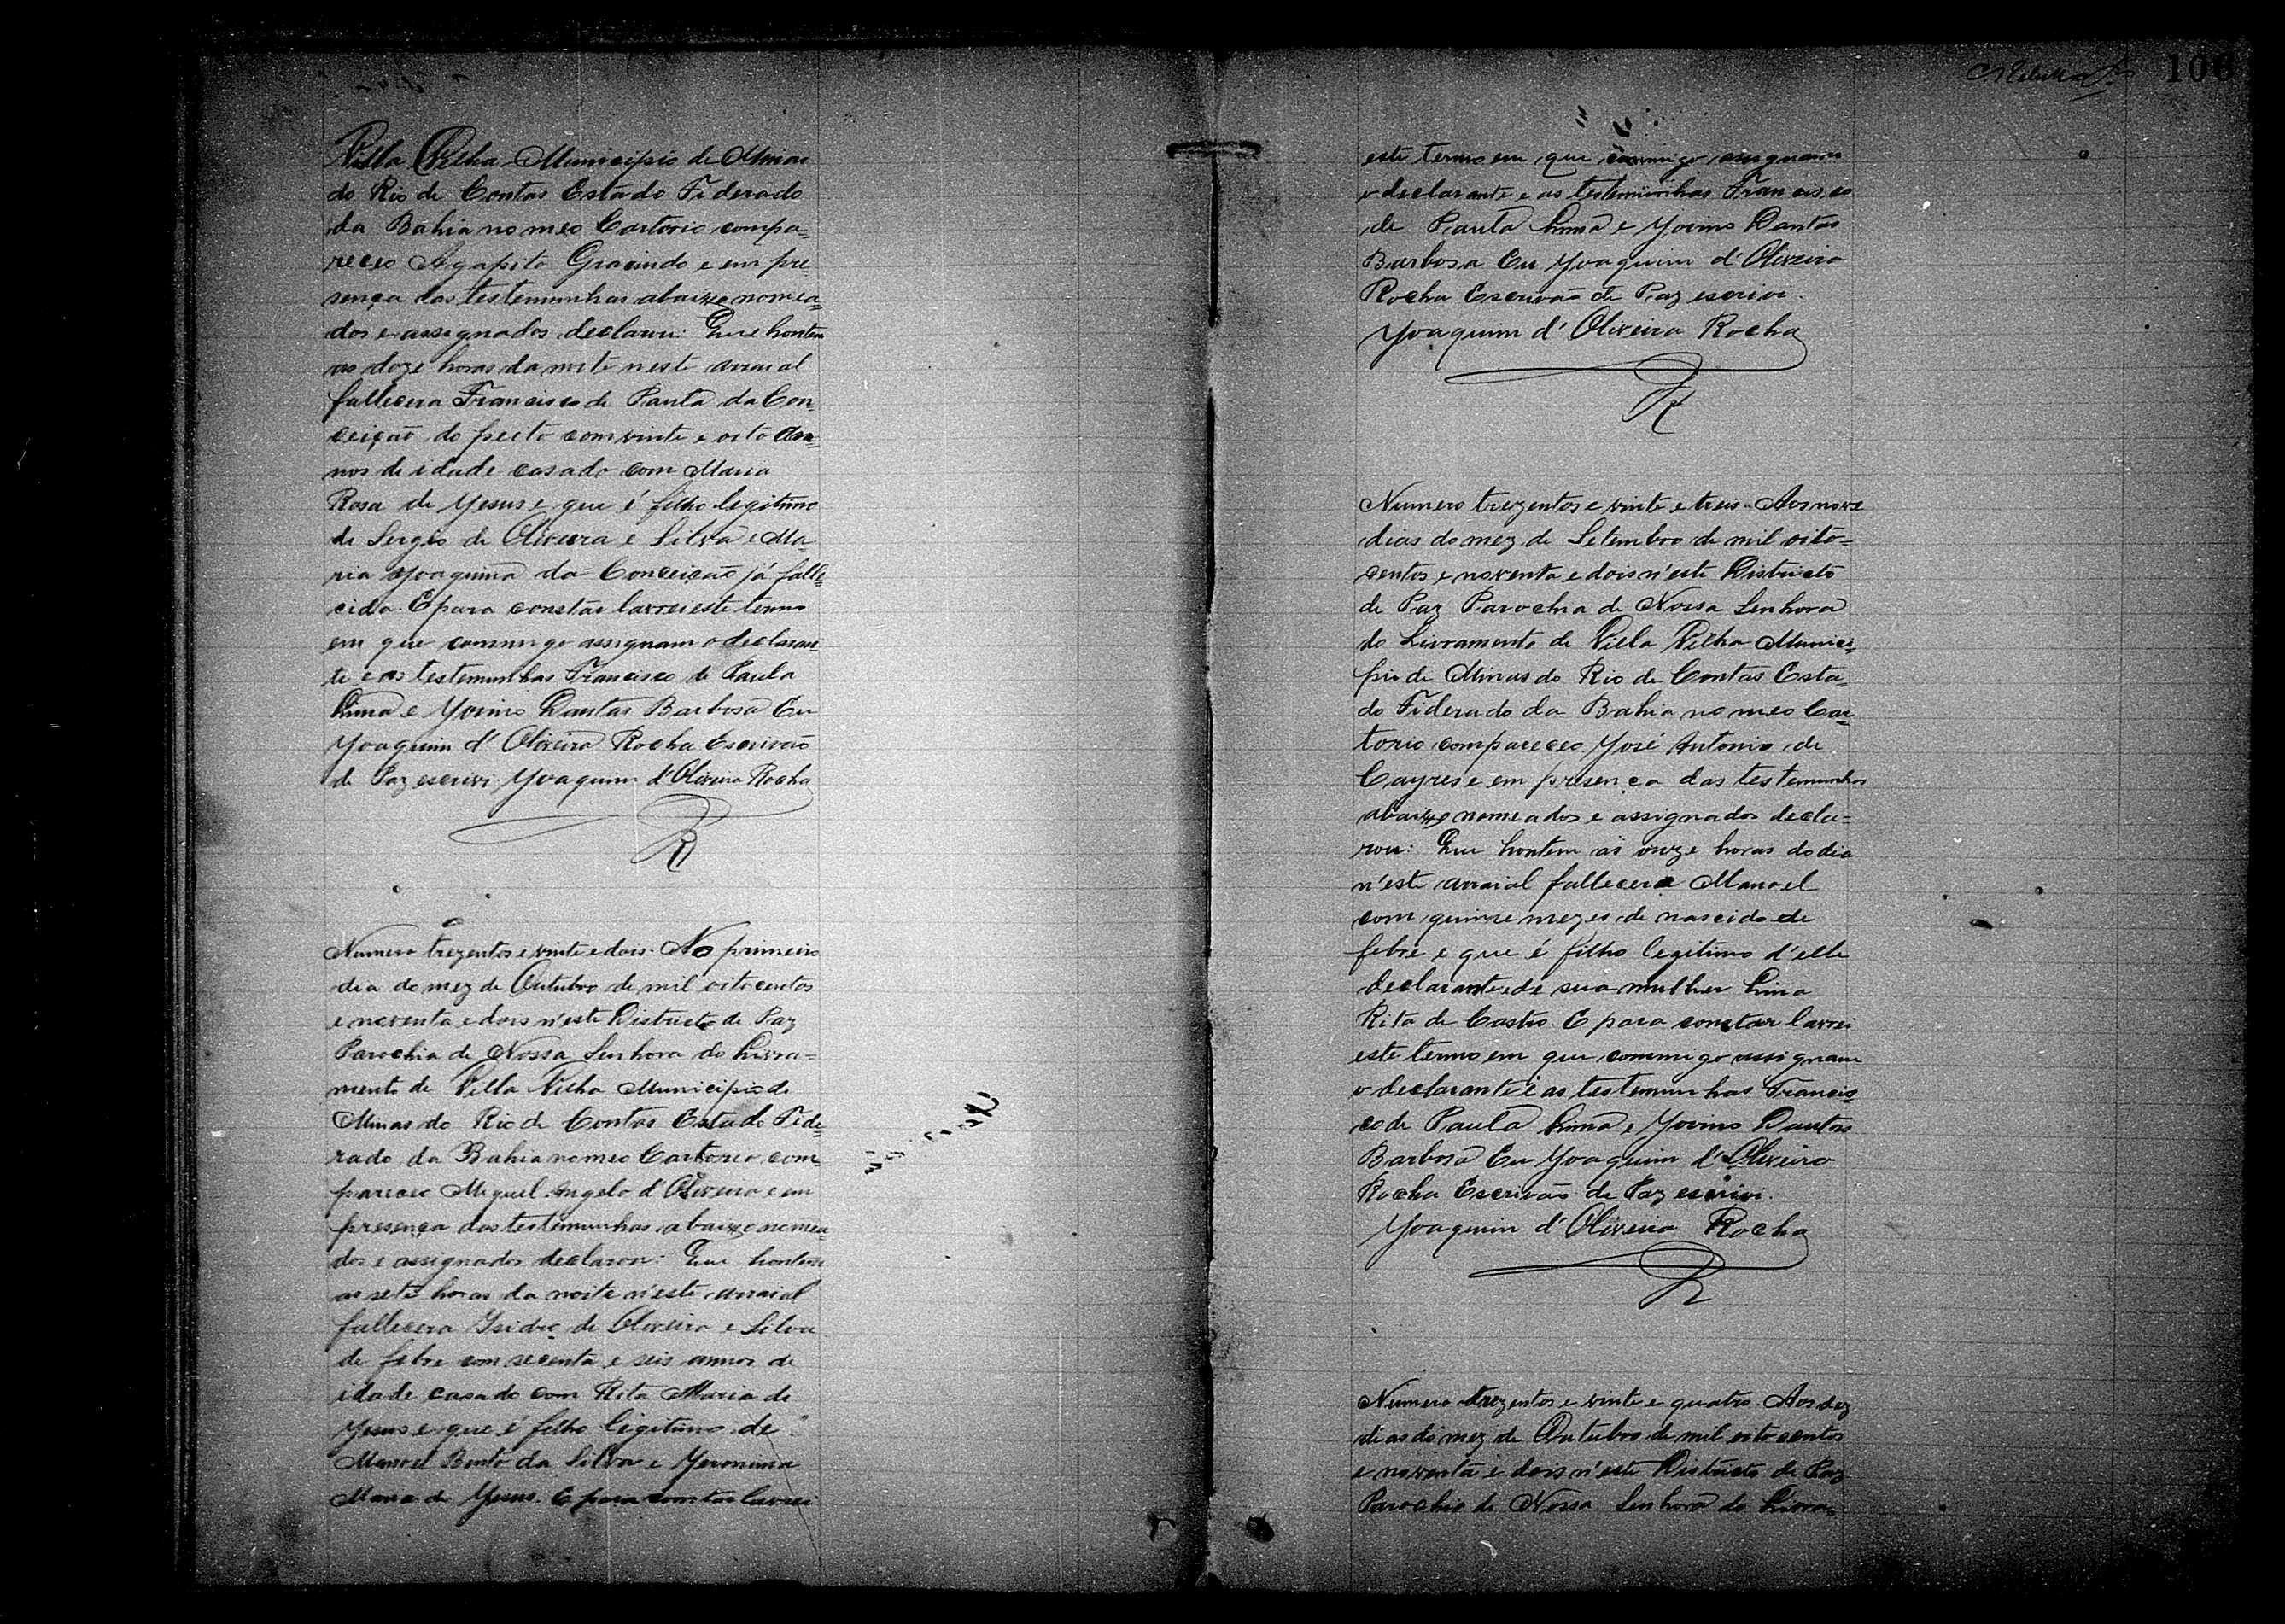 Villa Velha Municipio de Minas
do Rio de Contas Estado Federado
da Bahia no meo Cartorio compa=
receo Agapito Gracindo e em pre=
sença das testemunhas abaixo nomea=
dos e assignados declarou: Que hontem
as doze horas da noite neste arraial
fallecera Francisco de Paula da Con=
ceição do peito com vinte e oito an=
nos de idade casado com Maria
Rosa de Yesus e que é filho legitimo
de Sergio de Oliveira e Silva e Ma=
ria Yoaquina da Conceição já falle=
cida. E para constar lavrei este termo
em que commigo assignam o declaran=
te e as testemunhas Francisco de Paula
Lima e Yovino Dantas Barbosa Eu
Yoaquim d' Oliveira Rocha Escrivão
de Paz escrevi. Yoaquim d'Oliveira Rocha
R
Numero trezentos e vinte e dois. No primeiro
dia do mez de Outubro de mil oitocentos
e noventa e dois n'este Districto de Paz
Parochia de Nossa Senhora do Livra=
mento de Villa Velha Municipio de
Minas do Rio de Contas Estado Fede=
rado da Bahia no meo Cartorio com=
pareceo Miguel Angelo d'Oliveira e em
presença das testemunhas abaixo nomea=
dos e assignados declarou: Que hontem
as sete horas da noite n'este arraial
fallecera Ysidro de Oliveira e Silva
de febre com secenta e seis annos de
idade casado com Rita Maria de
Yesus e que é filho legitimo de
Manoel Bento da Silva e Yeronima
Maria de Yesus. E para constar lavrei
106
este termo em que commigo assignam
o declarante e as testemunhas Francisco
de Paula Lima e Yovino Dantas
Barbosa Eu Yoaquim d'Oliveira
Rocha Escrivão de Paz escrivi.
Yoaquim d'Oliveira Rocha
R
Numero trezentos e vinte e treis. Aos nove
dias do mez de Setembro de mil oito=
centos e noventa e dois n'este Districto
de Paz Parochia de Nossa Senhora
do Livramento de Villa Velha Munici=
pio de Minas do Rio de Contas Esta=
do Federado da Bahia no meo Car=
torio compareceo Yosé Antonio de
Cayres e em presença das testemunhas
abaixo nomeados e assignados decla=
rou: Que hontem ás onze horas do dia
n'este arraial fallecera Manoel
com quinze mezes de nascido de
febre e que é filho legitimo d'elle
declarante e de sua mulher Lina
Rita de Castro. E para constar lavrei
este termo em que commigo assignam
o declarante e as testemunhas Francis=
co de Paula Lima e Yovino Dantas
Barbosa Eu Yoaquim d'Oliveira
Rocha Escrivão de Paz escrivi.
Yoaquim d'Oliveira Rocha
R
Numero trezentos e vinte e quatro. Aos dez
dias do mez de Outubro de mil oitocentos
e noventa e dois n'este Districto de Paz
Parochia de Nossa Senhora do Livra=